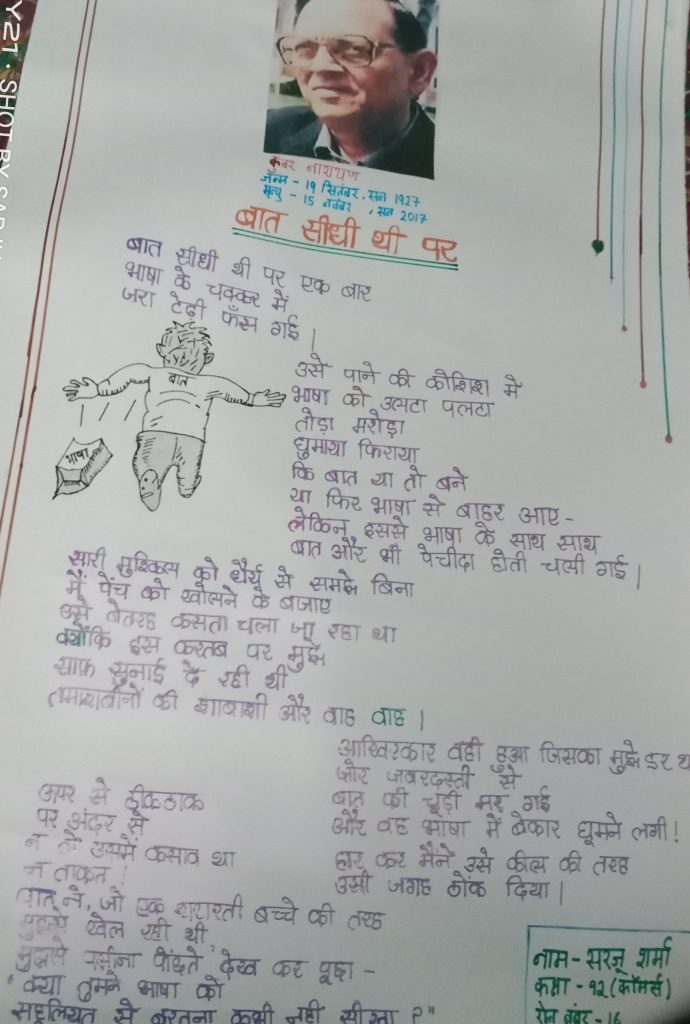 कुंवर नारायण
जन्म - 19 सितंबर, सन 1927
मृत्यु - 15 नवंबर, सन 2017
बात सीधी थी पर
बात सीधी थी पर एक बार
भाषा के चक्कर में
जरा टेढ़ी फँस गई |
बात
भाषा
उसे पाने की कोशिश में
भाषा को उलटा पलटा
तोड़ा मरोड़ा
घुमाया फिराया
कि बात या तो बने
या फिर भाषा से बाहर आए -
लेकिन इससे भाषा के साथ साथ
बात और भी पेचीदा होती चली गई |
सारी मुश्किल को धैर्य से समझे बिना
मैं पेंच को खोलने के बजाए
उसे बेतरह कसता चला जा रहा था
क्योंकि इस करतब पर मुझे
साफ़ सुनाई दे रही थी
तमाशबीनों की शाबाशी और वाह वाह |
आखिरकार वही हुआ जिसका मुझे डर था
जोर जबरदस्ती से
बात की चूड़ी मर गई
और वह भाषा में बेकार घूमने लगी !
हार कर मैंने उसे कील की तरह
उसी जगह ठोंक दिया |
ऊपर से ठीकठाक
पर अंदर से
न तो उसमें कसाव था
न ताकत !
बात ने, जो एक शरारती बच्चे की तरह
मुझसे खेल रही थी
मुझसे पसीना पोंछते देख कर पूछा -
"क्या तुमने भाषा को
सहूलियत से बरतना कभी नहीं सीखा ?"
नाम - सरजू शर्मा
कक्षा - १२ (कॉमर्स)
रोल नंबर - 16
Y21 · SHOT BY